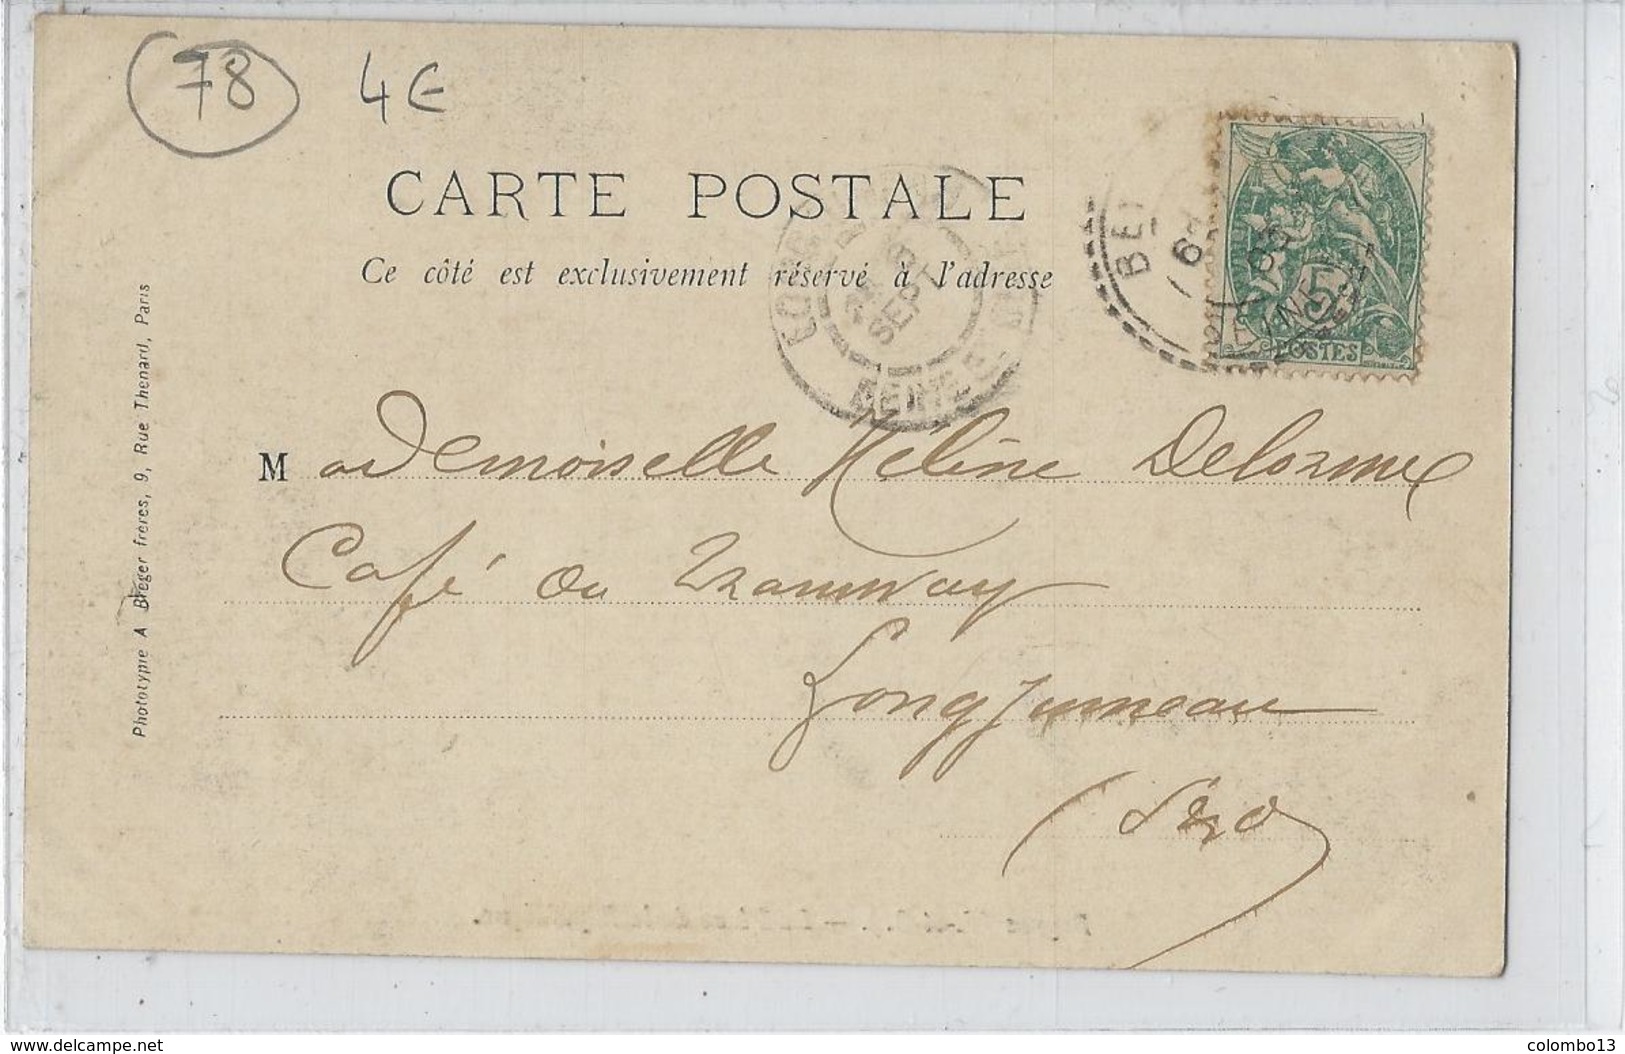 78
4€
CARTE POSTALE
Ce côté est exclusivement réservé à l'adresse
BE
5
POSTES
SEPT
Phototypie A Breger frères, 9, Rue Thenard, Paris
Mademoiselle Hélène Delorme
Café du Tramway
Longjumeau
www.delcampe.net
colombo13